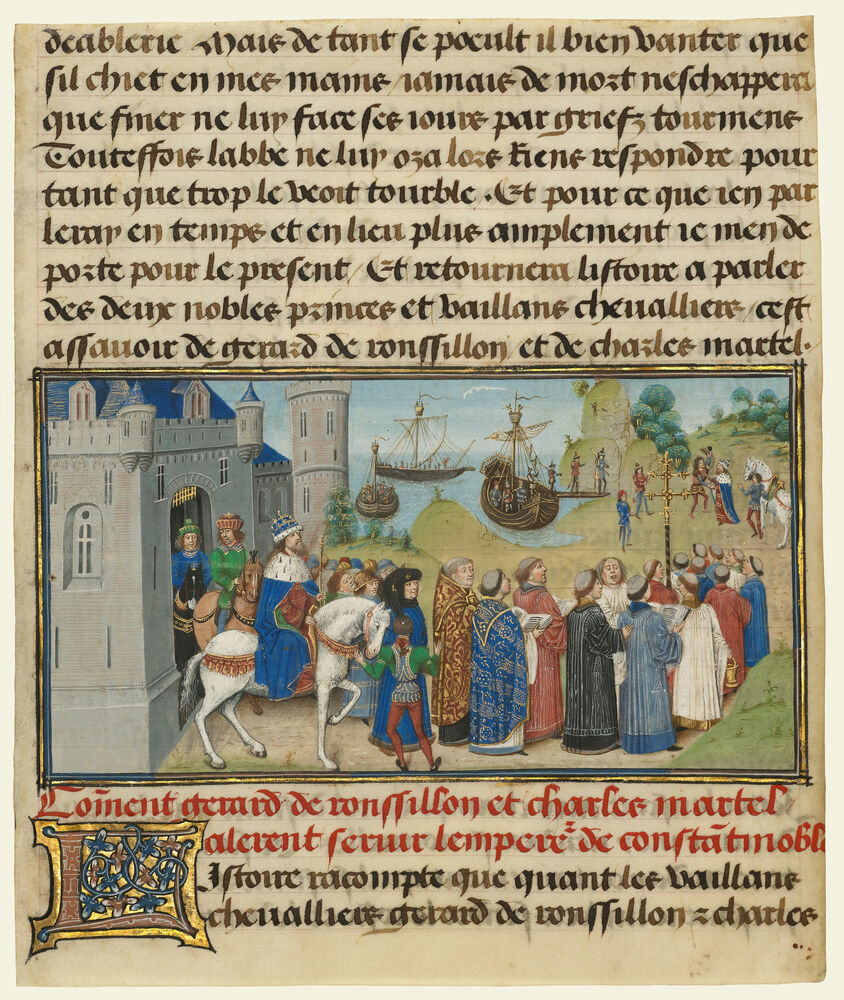 deablerie Mais de tant se poeult il bien vanter que
sil chiet en mes mains / iamais de mort neschappera
que finer ne luy face ses iours par griefz tourmens
Touteffois labbe ne luy oza lors riens respondre pour
tant que trop le veoit tourble . Et pour ce que ien par
leray en temps et en lieu plus amplement ie men de
porte pour le present / Et retournera listoire a parler
des deux nobles princes et vaillans chevalliers / cest
assavoir de gerard de roussillon et de charles martel .
Coment gerard de roussillon et charles martel
alerent servir lempere de constatinoble
LIstoire racompte que quant les vaillans
chevalliers gerard de roussillon z charles